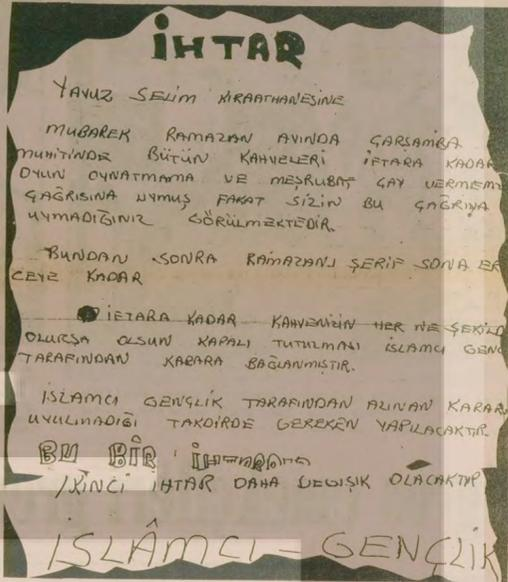 İHTAR
YAVUZ SELİM KIRAATHANESİNE
MUBAREK RAMAZAN AYINDA ÇARŞAMBA
MUHİTİNDE BÜTÜN KAHVELERİ İFTARA KADAR
OYUN OYNATMAMA VE MEŞRUBAT ÇAY VERMEME
ÇAĞRISINA UYMUŞ FAKAT SİZİN BU ÇAĞRIYA
UYMADIĞINIZ GÖRÜLMEKTEDİR.
BUNDAN SONRA RAMAZANI ŞERİF SONA ER
CEYE KADAR
İFTARA KADAR KAHVENİZİN HER NE ŞEKİLD
OLURSA OLSUN KAPALI TUTULMASI İSLAMCI GENÇ
TARAFINDAN KARARA BAĞLANMIŞTIR.
İSLAMCI GENÇLİK TARAFINDAN ALINAN KARARA
UYULMADIĞI TAKDİRDE GEREKEN YAPILACAKTIR.
BU BİR İHTARDIR
İKİNCİ İHTAR DAHA DEĞİŞİK OLACAKTIR
İSLÂMCI - GENÇLİK